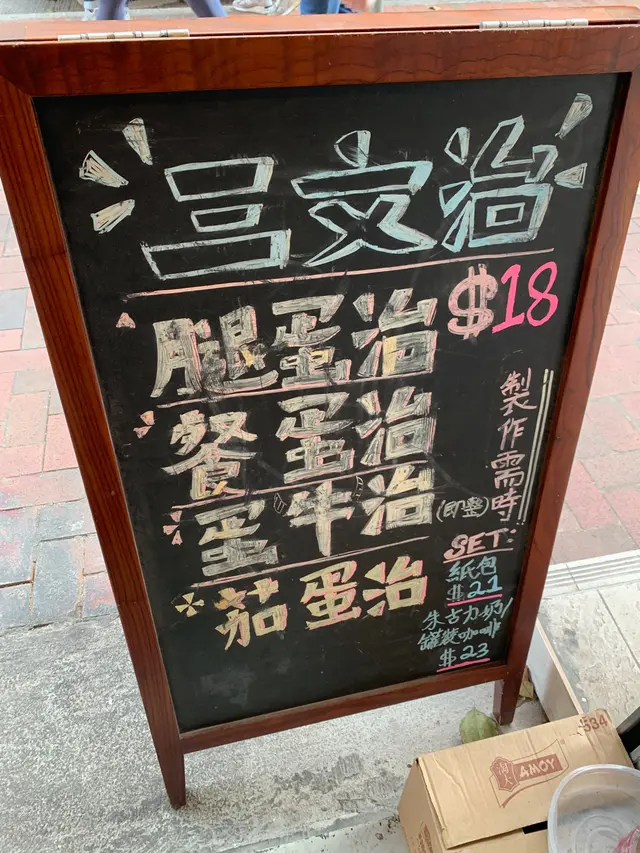 三文治
$18
腿蛋治
餐蛋治
蛋牛治(即整)
茄蛋治
製作需時
SET:
紙包
$21
朱古力奶/
罐裝咖啡
$23
淘大 AMOY